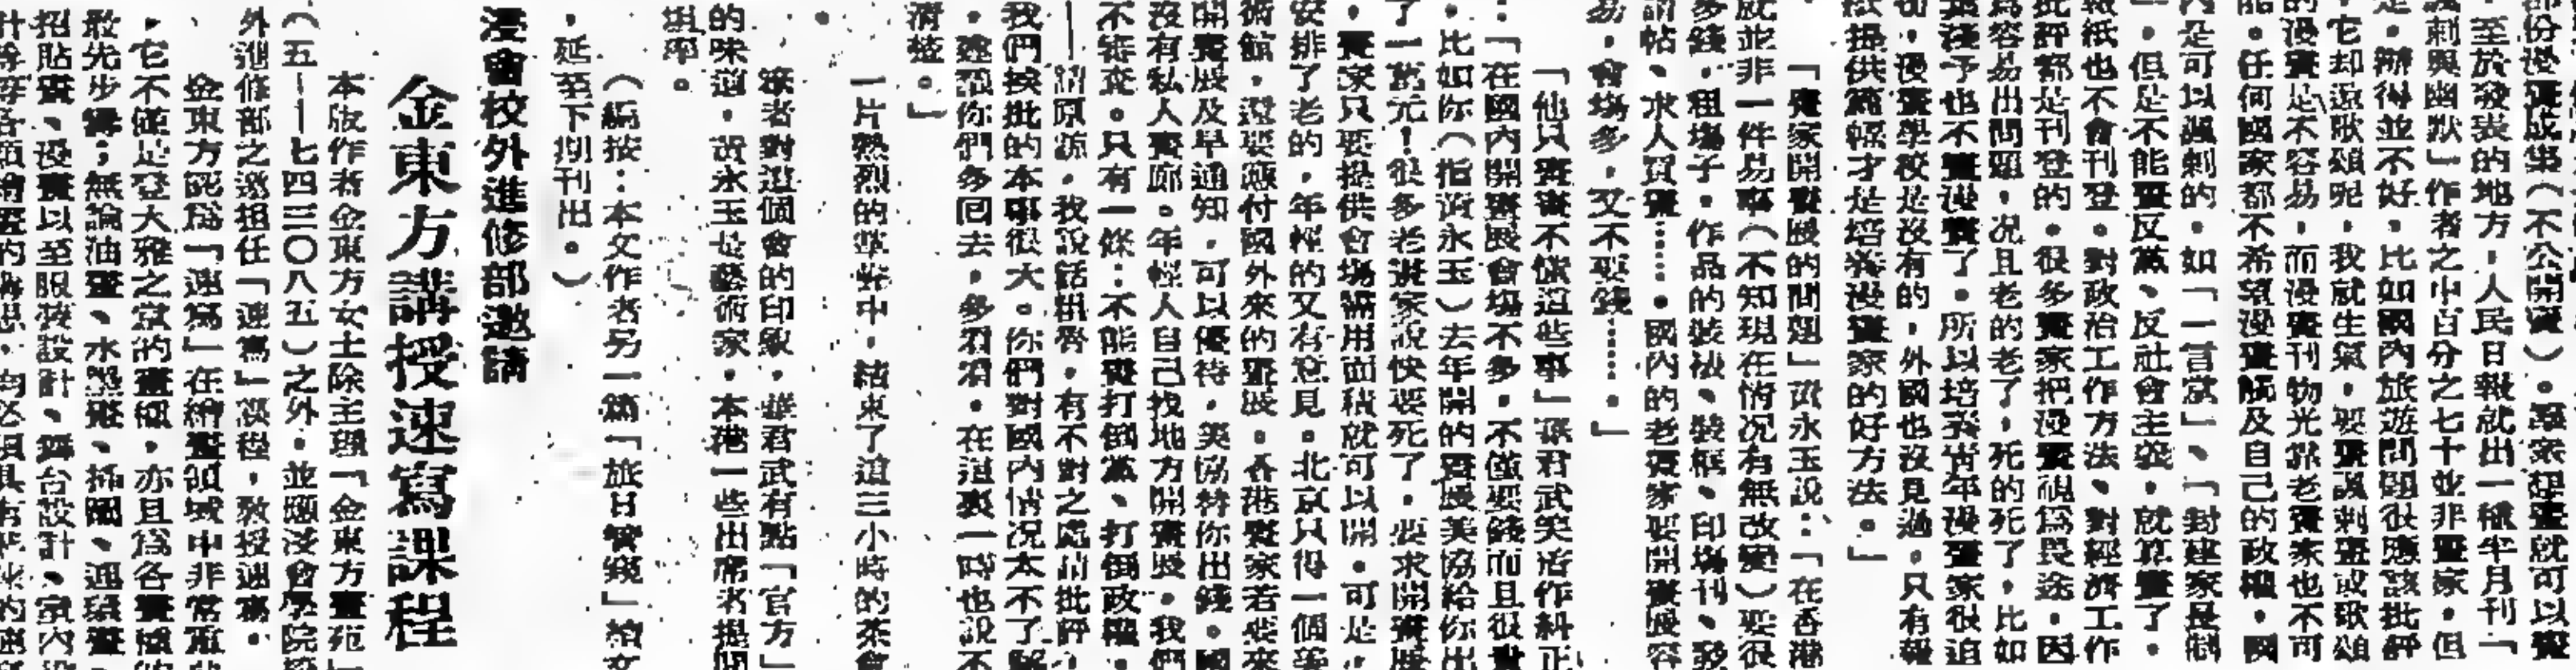 至於發表的地方,人民日報就出一種半月刊「
諷刺與幽默」作者之中百分之七十並非畫家。但
是,辦得並不好,比如國內旅遊問題很應該批評
,它却還歌頌呢,我就生氣。要畫諷刺畫或歌頌
的漫畫是不容易,而漫畫刊物光靠老畫家也不可
能。任何國家都不希望漫畫觸及自己的政權。國
內是可以諷刺的。如「一言堂」、「封建家長制
」。但是不能畫反黨、反社會主義,就算畫了,
報紙也不會刊登。對政治工作方法、對經濟工作
批評都是刊登的。很多畫家把漫畫視爲畏途。因
爲容易出問題,况且老的老了,死的死了,比如
葉淺予也不畫漫畫了。所以培養青年漫畫家很迫
切,漫畫學校是沒有的,外國也沒見過。只有報
紙提供篇幅才是培養漫畫家的好方法。」
「畫家開畫展的問題」黃永玉說:「在香港
就並非一件易事(不知現在情况有無改變)要很
多錢,租塲子,作品的裝裱、裝框、印塲刊、發
請帖、求人買畫……。國內的老畫家要開畫展容
易,會塲多,又不要錢……。」
「他只畫畫不懂這些事」華君武笑着作糾正
:「在國內開畫展會塲不多,不僅要錢而且很貴
,比如你(指黃永玉)去年開的畫展美協給你出
了一萬元!很多老畫家說快要死了,要求開畫展
,畫家只要提供會塲需用面積就可以開。可是,
安排了老的,年輕的又有意見。北京只得一個美
術館,還要應付國外來的畫展。香港畫家若要來
開畫展及早通知,可以優待,美協替你出錢。國
沒有私人畫廊。年輕人自己找地方開畫展,我們
不審查。只有一條:不能畫打倒黨、打倒政權。
——請原諒,我說話粗魯,有不對之處請批評,
我們挨批的本事很大。你們對國內情况太不了解
,建議你們多回去,多看看。在這裏一時也說不
清楚。」
一片熱烈的掌聲中,結束了這三小時的茶會
。
筆者對這個會的印象,華君武有點「官方」
的味道,黃永玉是藝術家,本港一些出席者提問
坦率。
(編按:本文作者另一篇「旅日管窺」續文
,延至下期刊出。)
浸會校外進修部邀請
金東方講授速寫課程
本版作者金東方女士除主理「金東方畫苑」
(五——七四三〇八五)之外,並應浸會學院校
外進修部之邀担任「速寫」課程,敎授速寫。
金東方認爲「速寫」在繪畫領域中非常重要
,它不僅是登大雅之堂的畫種,亦且爲各畫種的
最先步驟;無論油畫、水墨畫、插圖、連環畫、
招貼畫、漫畫以至服裝設計、舞台設計、室內設